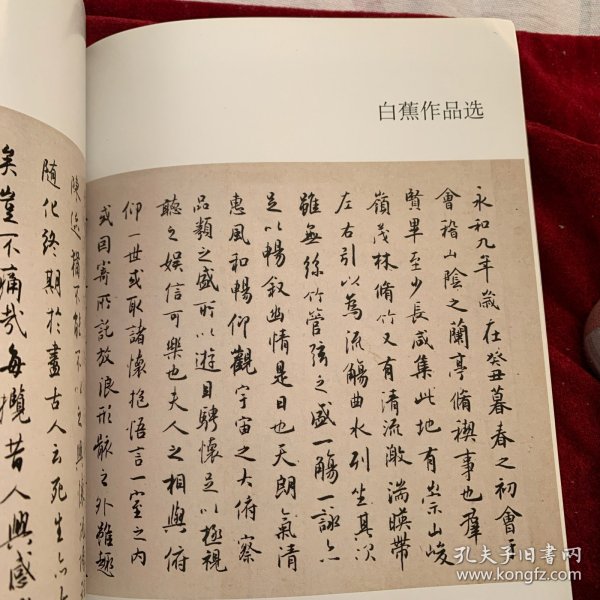 白蕉作品选
永和九年歲在癸丑暮春之初會于
會稽山陰之蘭亭脩禊事也羣
賢畢至少長咸集此地有崇山峻
領茂林脩竹又有清流激湍暎帶
左右引以為流觴曲水列坐其次
雖無絲竹管弦之盛一觴一詠亦
足以暢叙幽情是日也天朗氣清
惠風和暢仰觀宇宙之大俯察
品類之盛所以遊目騁懷足以極視
聽之娛信可樂也夫人之相與俯
仰一世或取諸懷抱悟言一室之內
或因寄所託放浪形骸之外雖趣
陳迹猶不能不以之興懷
随化終期於盡古人云死生亦
矣豈不痛哉每攬昔人興感
孔夫子旧书网
www.kongfz.com